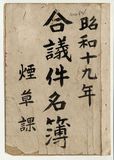 昭和十九年
合議件名簿
煙草課